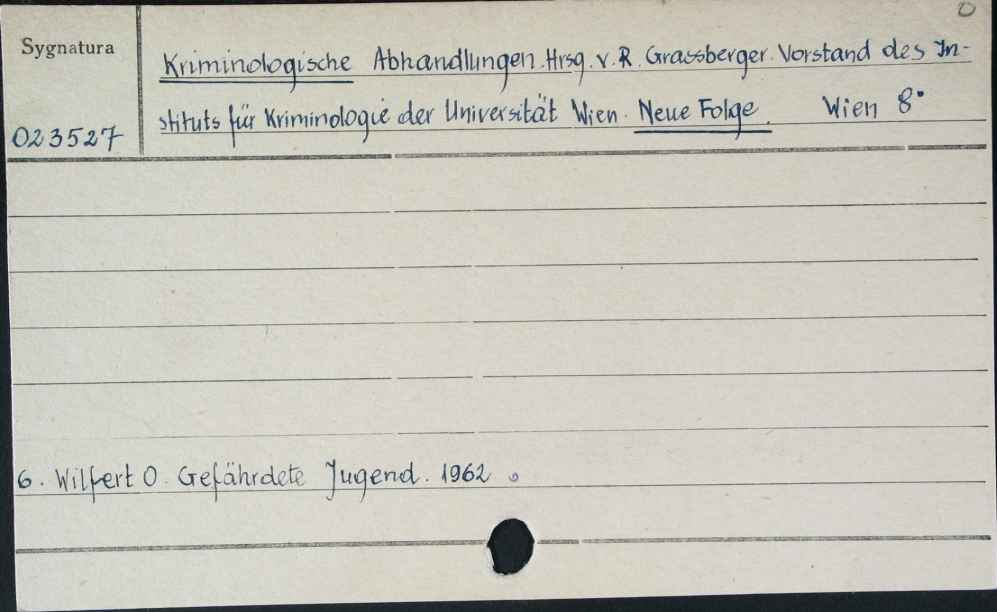 0
Sygnatura
Kriminologische Abhandlungen. Hrsg. v. R. Grassberger. Vorstand des In-
stituts für Kriminologie der Universität Wien. Neue Folge. Wien 8°
023527
6. Wilfert O. Gefährdete Jugend. 1962